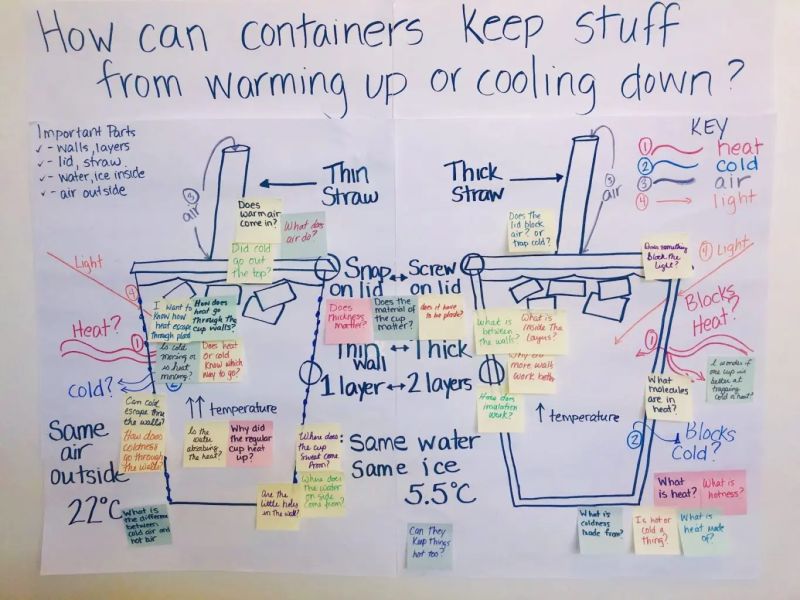 How can containers keep stuff
from warming up or cooling down?
Important Parts
✓ - walls, layers
✓ - lid, straw
✓ - water, ice inside
✓ - air outside
KEY
1 heat
2 cold
3 air
4 light
3 air
Thin
Straw
Thick
Straw
3 air
Does
warm air
come in?
What does
air do?
Did cold
go out
the top?
Does the
lid block
air? or
trap cold?
Does something
block the
light?
Light
4
4 Light
Snap ↔ Screw
on lid on lid
I want to
know how
heat escape
through
How does
heat go
through the
cup walls?
Does
thickness
matter?
Does the
material of
the cup
matter?
does it have
to be
What is
between
the walls?
What is
inside the
layers?
Heat?
1
Blocks
Heat?
1
Is cold
moving or
is heat
moving?
Does heat
or cold
know which
way to go?
Thin ↔ Thick
wall
1 layer ↔ 2 layers
more wall
work
I wonder if
one cup is
better at
trapping
cold n heat?
Cold?
2
What
molecules
are in
heat?
Can cold
escape thru
the walls?
How does
coldness
go through
the walls?
↑↑ temperature
How does
insulation
work?
↑ temperature
2 Blocks
Cold?
Same
air
outside
22°C
Is the
water
absorbing
the heat?
Why did
the regular
cup heat
up?
Where does
the cup
sweat come
from?
Where does
the water
on side
come from?
: Same water
Same ice
5.5°C
Are the
little holes
in the wall?
What is
the difference
between
cold air and
hot air
What
is heat?
What is
hotness?
Can they
keep things
hot too?
What is
coldness
made from?
Is hot or
cold a
thing?
What is
heat made
of?